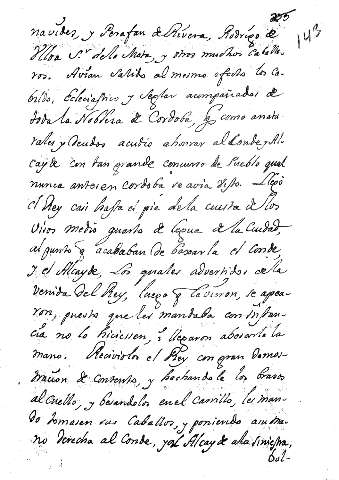 225
143
navides, y Perafan de Rivera, Rodrigo de
Ulloa Sr. de la Mota, y otros muchos Caballe-
ros. Avian salido al mismo efecto los Ca-
bildos, Eclesiastico y Seglar acompañados de
toda la Nobleza de Cordoba, q como a
rales y Deudos acudio ahonrar al Conde y Al-
cayde con tan grande concurso de Pueblo qual
nunca antes en Cordoba se avia visto. Llegó
el Rey casi hasta el pie de la cuesta de los
Visos medio quarto de legua de la Ciudad,
al punto q acababan de baxarla el Conde
y el Alcayde, Los quales advertidos de la
venida del Rey, luego q la vieron, se apea-
ron, puesto que les mandaba con instan-
cia no lo hiciessen, i llegaron abesarle la
mano. Recibiolos el Rey con gran demos-
tracion de contento, y hechandole los brazos
al Cuello, y besandolos en el Carrillo, les man-
do tomasen sus Caballos, y poniendo a su ma-
no derecha al Conde, y al Alcayde a la siniestra,
bol-